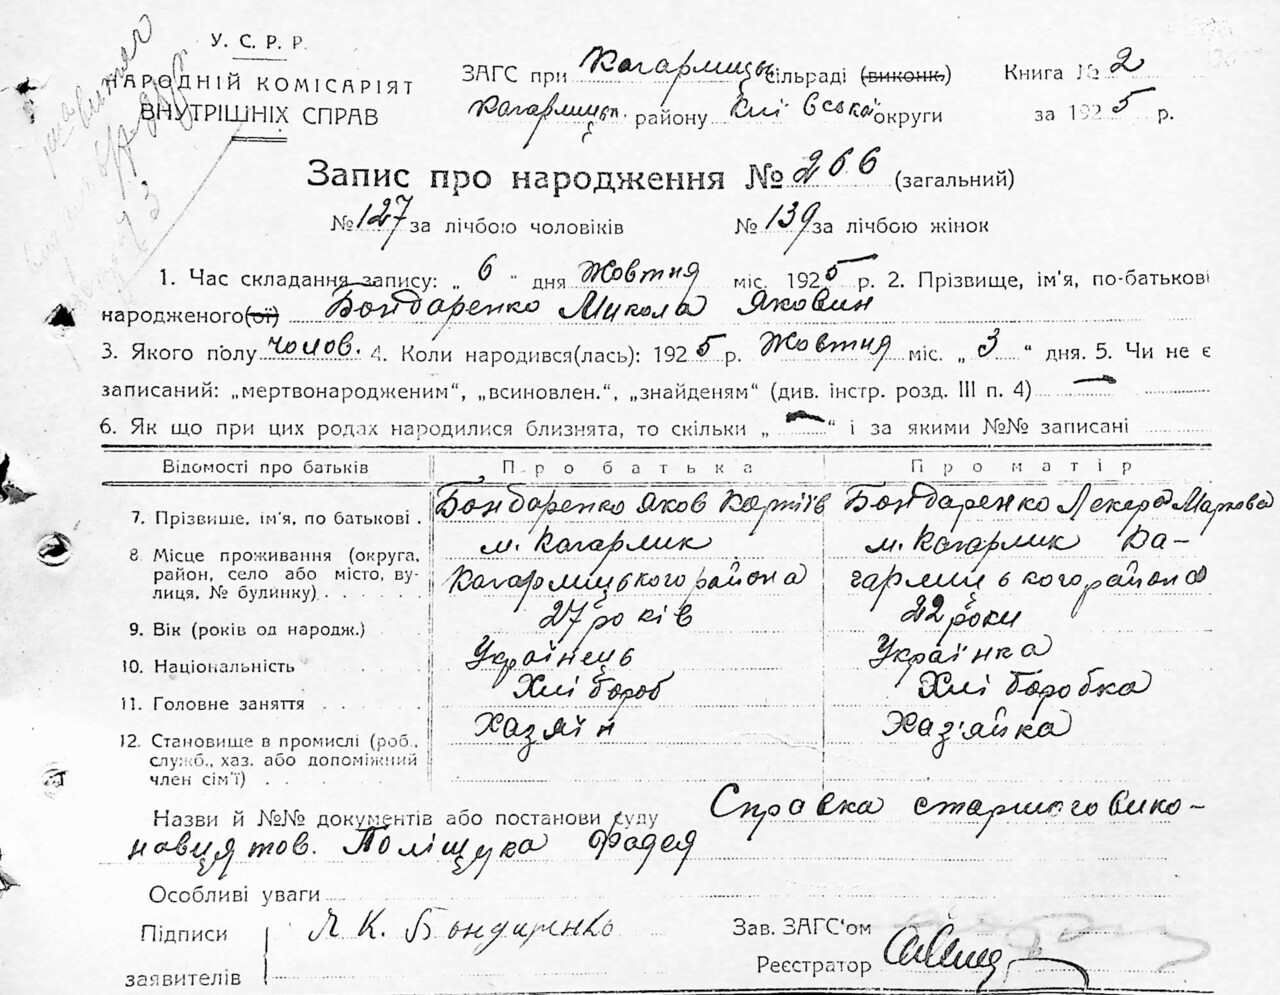 У. С. Р. Р.
НАРОДНІЙ КОМІСАРІЯТ
ВНУТРІШНІХ СПРАВ
ЗАГС при Кагарлицьк сільраді (виконк.) Книга № 2
Кагарлицьк. району Киї вської округи за 1925 р.
Запис про народження № 266 (загальний)
№ 127 за лічбою чоловіків № 139 за лічбою жінок
1. Час складання запису: „ 6 “ дня Жовтня міс. 1925 р. 2. Прізвище, ім'я, по-батькові
народженого(ої) Бондаренко Микола Яковин
3. Якого полу чолов. 4. Коли народився(лась): 1925 р. Жовтня міс. „ 3 “ дня. 5. Чи не є
записаний: „мертвонародженим“, „всиновлен.“, „знайденям“ (див. інстр. розд. III п. 4) —
6. Як що при цих родах народилися близнята, то скільки „ — “ і за якими №№ записані
Відомості про батьків Про батька Про матір
7. Прізвище, ім'я, по батькові . Бондаренко Яков Бондаренко Маркова
8. Місце проживання (округа, м. Кагарлик м. Кагарлик Ка-
район, село або місто, ву- Кагарлицького района гарлицького района
лиця, № будинку) . . . . .
9. Вік (років од народж.) 27 років 22 роки
10. Національність Українець Українка
11. Головне заняття . . . . Хлібороб Хліборобка
12. Становище в промислі (роб., Хазяїн Хаз'яйка
служб., хаз. або допоміжний
член сім'ї) . .
Назви й №№ документів або постанови суду Справка старшого вико-
навця тов. Поліщука Фадея
Особливі уваги
Підписи Я К. Бондаренко Зав. ЗАГС'ом
заявителів Реєстратор